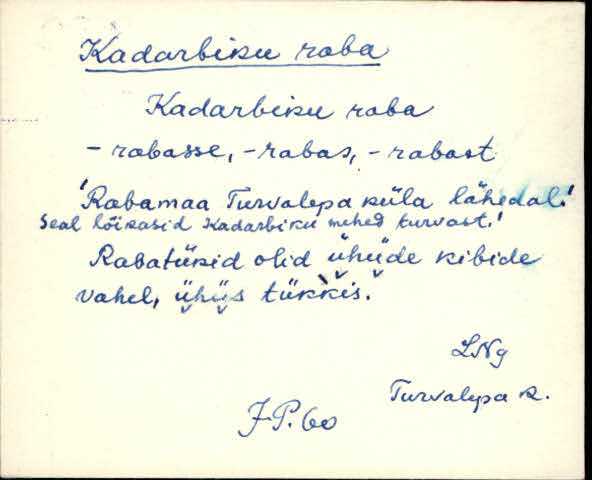 Kadarbiku raba
Kadarbiku raba
- rabasse, - rabas, - rabast
'Rabamaa Turvalepa küla lähedal.'
Seal lõikasid Kadarbiku mehed turvast.'
Rabatükid olid ühüde kibide
vahel, ühüs tükkis.
LNg
Turvalepa k.
J.P. 60